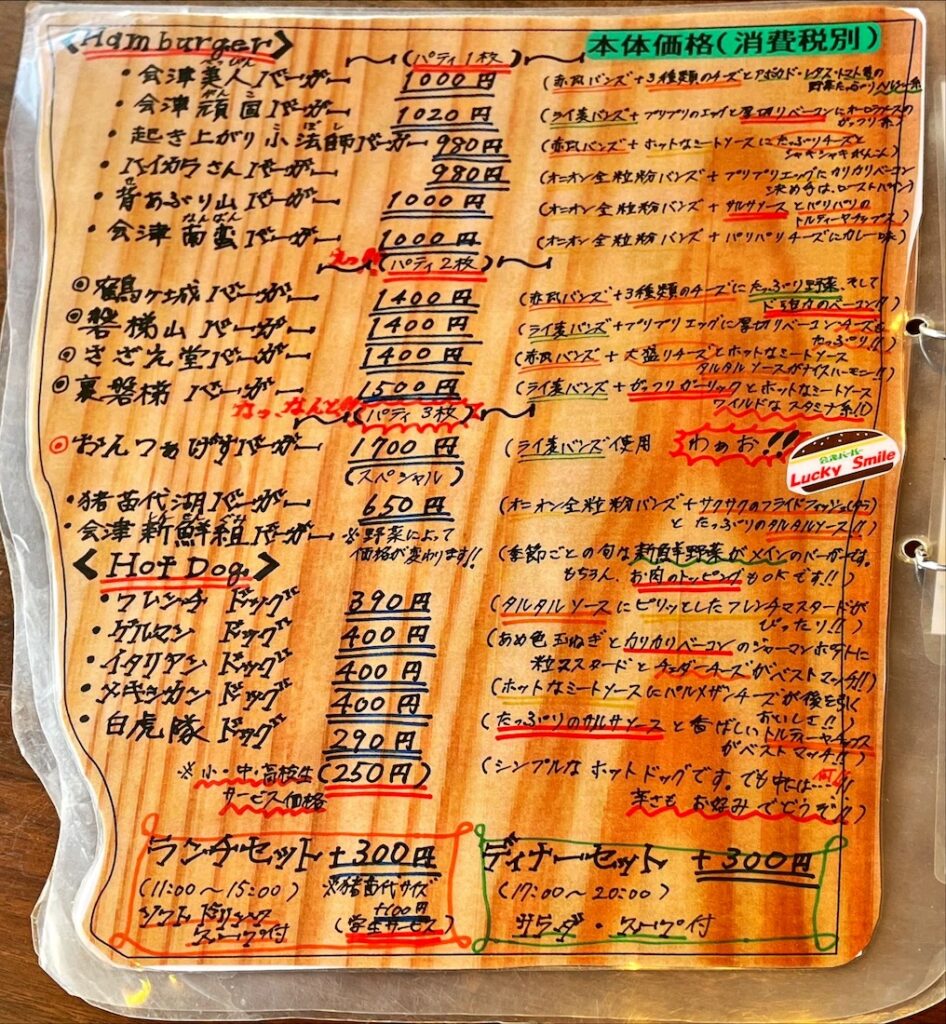 <Hamburger>
本体価格(消費税別)
(パティ1枚)
べっぴん
・会津美人バーガー 1000円 (赤瓦バンズ+3種類のチーズとアボカド・レタス・トマト等の
野菜たっぷりヘルシー系
がんこ
・会津頑固バーガー 1020円 (ライ麦バンズ+プリプリのエッグと厚切りベーコンにオーロラソースの
ガッツリ系
こぼし
・起き上がり小法師バーガー 980円 (赤瓦バンズ+ホットなミートソースにたっぷりチーズと
・ハイカラさんバーガー 980円 (オニオン全粒粉バンズ+プリプリエッグにカリカリベーコン
決め手は、ローストハザン)
せ
・背あぶり山バーガー 1000円 (オニオン全粒粉バンズ+サルサソースとパリパリの
トルティーヤチップス)
なんばん
・会津南蛮バーガー 1000円 (オニオン全粒粉バンズ+パリパリチーズにカレー味)
えっ!!
(パティ2枚)
◎鶴ヶ城バーガー 1400円 (赤瓦バンズ+3種類のチーズにたっぷり野菜、そして
ド迫力のベーコン!!)
◎磐梯山バーガー 1400円 (ライ麦バンズ+プリプリエッグに厚切りベーコンチーズも
たっぷり!!)
◎さざえ堂バーガー 1400円 (赤瓦バンズ+大盛りチーズとホットなミートソース
タルタルソースがナイスハーモニー!!)
◎裏磐梯バーガー 1500円 (ライ麦バンズ+ガッツリガーリックとホットなミートソース
ワイルドなスタミナ系!!)
なっ、なんと!!
(パティ3枚)
◎おんつぁげすバーガー 1700円 (ライ麦バンズ使用 わぁお!!
会津バーバー
Lucky Smile
(スペシャル)
・猪苗代湖バーガー 650円 (オニオン全粒粉バンズ+サクサクのフライドフィッシュ(たら)
とたっぷりのタルタルソース!!)
・会津新鮮組バーガー ※野菜によって
価格が変わります!! (季節ごとの旬な新鮮野菜がメインのバーガーです。
もちろん、お肉のトッピングもOKです!!)
<Hot Dog>
・フレンチドッグ 390円 (タルタルソースにピリッとしたフレンチマスタードが
ぴったり!!)
・ゲルマンドッグ 400円 (あめ色玉ねぎとカリカリベーコンのジャーマンポテトに
粒マスタードとチェダーチーズがベストマッチ!!)
・イタリアンドッグ 400円 (ホットなミートソースにパルメザンチーズが後を引く
おいしさ!!)
・メキシカンドッグ 400円 (たっぷりのサルサソースと香ばしいトルティーヤチップス
がベストマッチ!!)
・白虎隊ドッグ 290円 (シンプルなホットドッグです。でも中には…何!!
辛さもお好みでどうぞ!!)
※小・中・高校生 (250円)
サービス価格
ランチセット+300円
(11:00~15:00) ※猪苗代サイズ
+100円
ソフトドリンク
スープ付 (学生サービス)
ディナーセット +300円
(17:00~20:00)
サラダ・スープ付